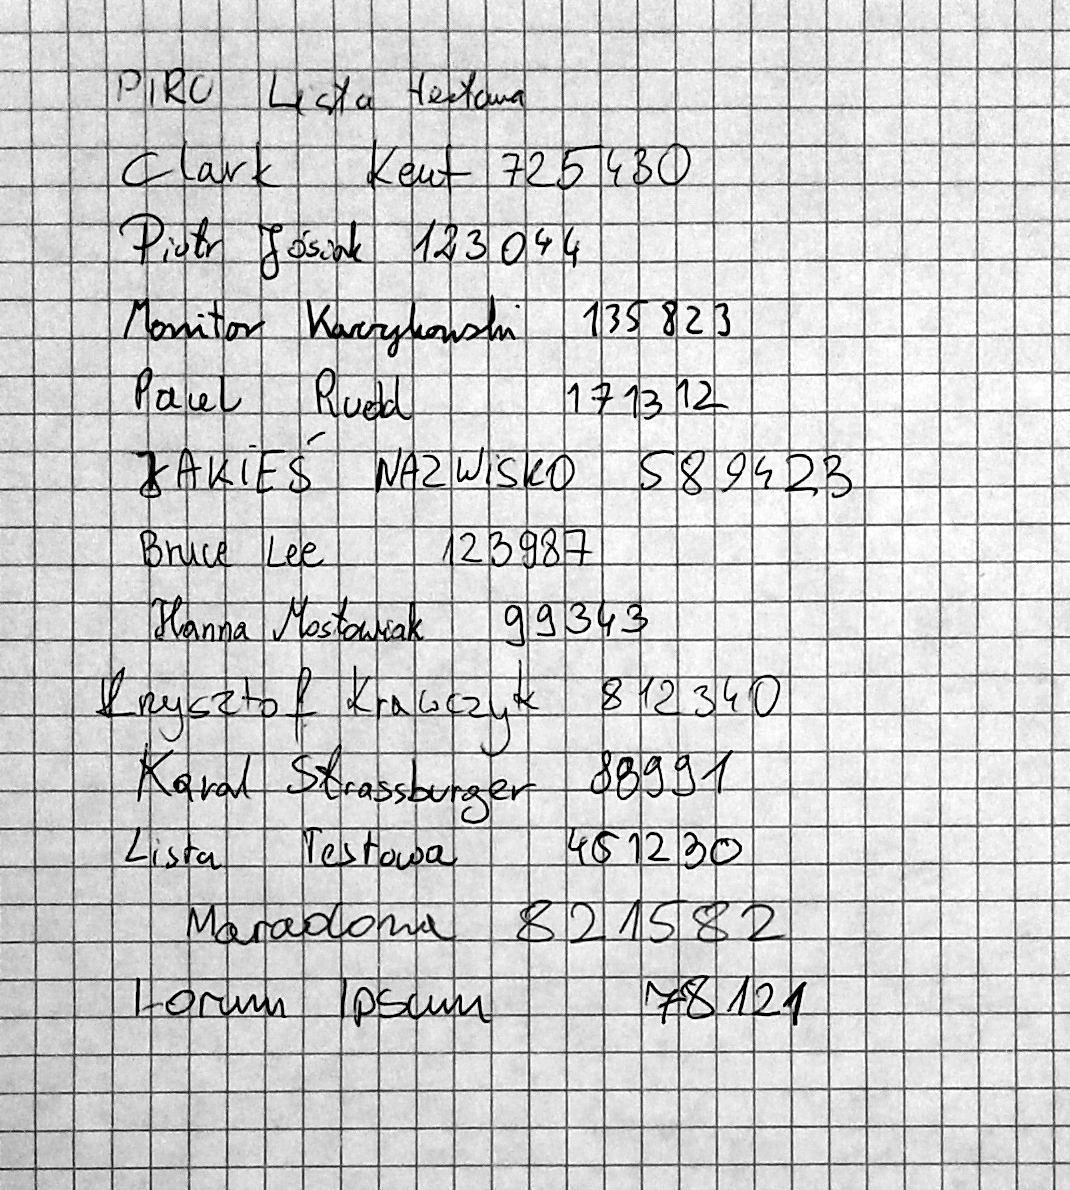 PIRO Lista testowa
Clark Kent 725430
Piotr Jósiak 123044
Monitor 135823
Paul Rudd 171312
JAKIEŚ NAZWISKO 589423
Bruce Lee 123987
Hanna Mostowiak 99343
Krzysztof Krawczyk 812340
Karol Strassburger 88991
Lista Testowa 461230
Maradona 821582
Lorum Ipsum 78121